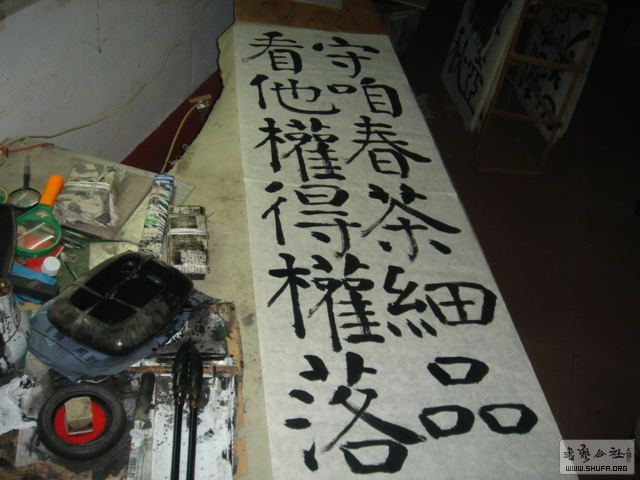 守咱春茶細品
看他權得權落
書藝公社
WWW.SHUFA.ORG